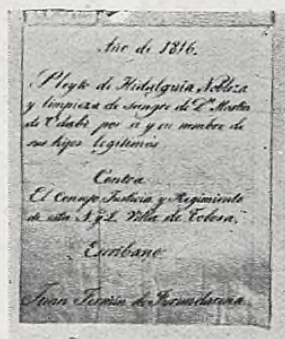 Año de 1816.
Pleyto de Hidalguia Nobleza
y limpieza de sangre de Dn Martin
de Olabe por si y en nombre de
sus hijos legitimos
Contra
El Concejo Justicia y Regimiento
de esta N. y L. Villa de Tolosa,
Escribano
Juan Fermin de Furundarena.